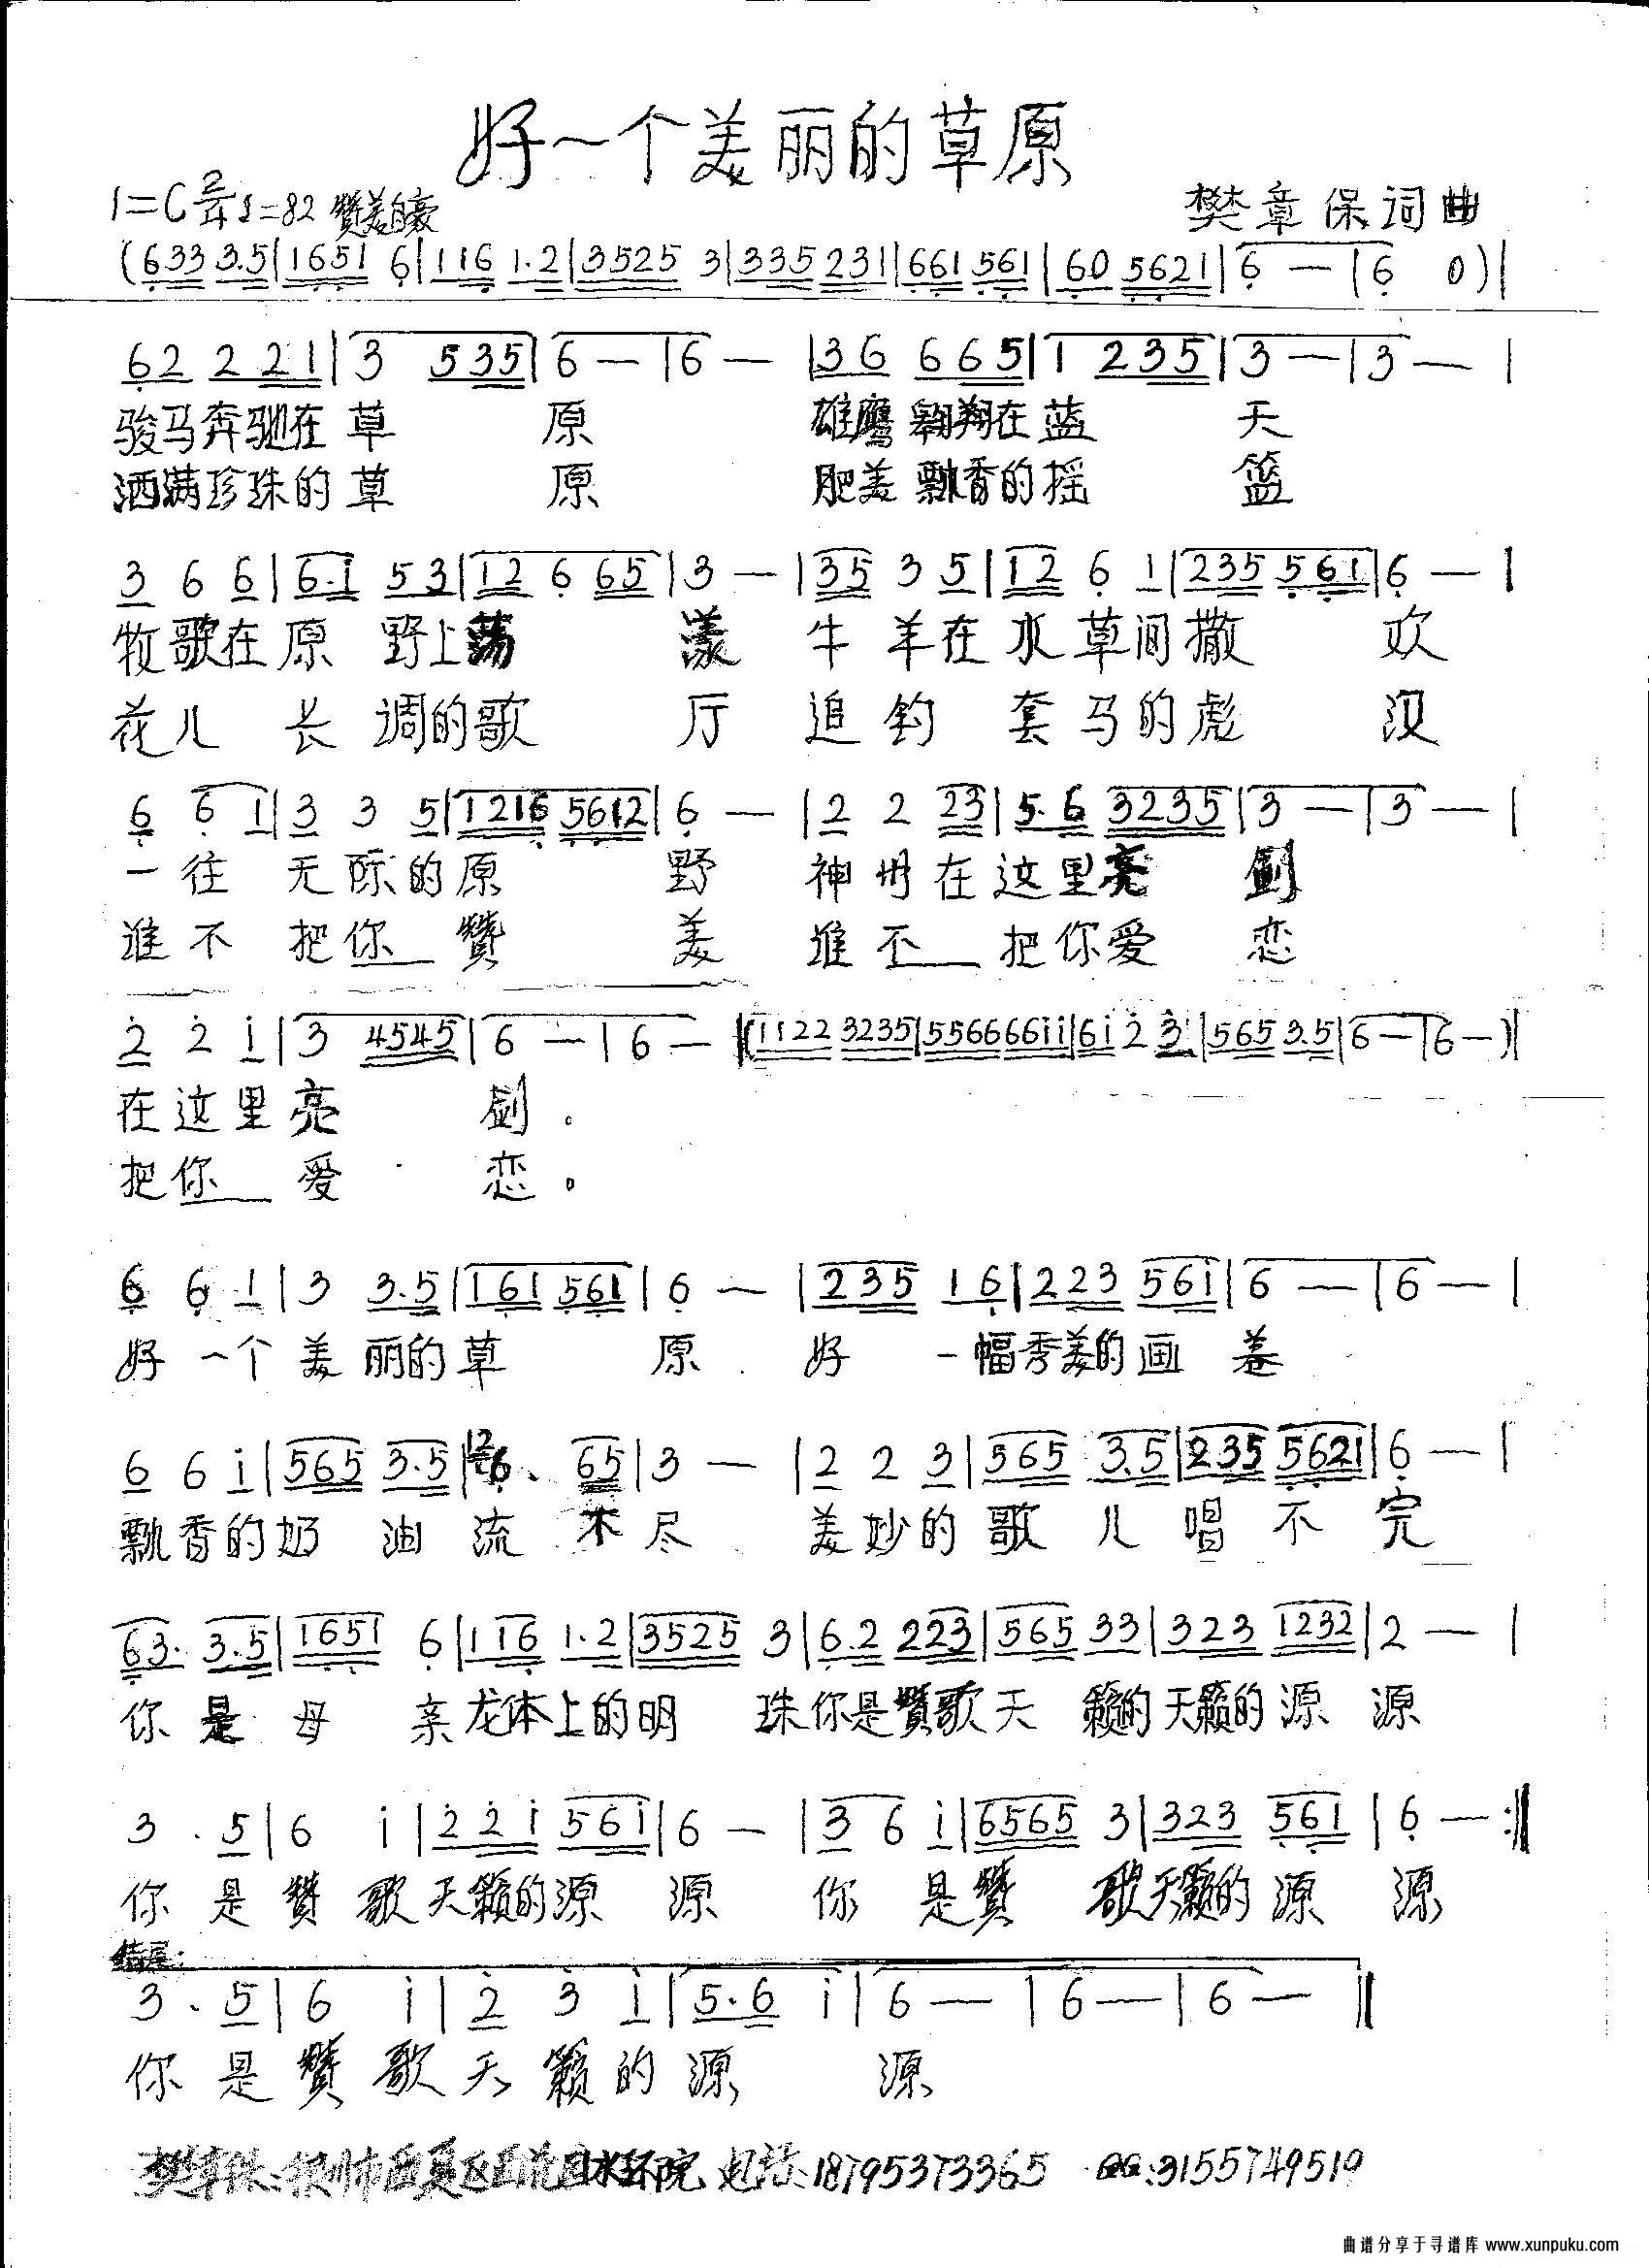 好一个美丽的草原
1=C 2/4 ♩=82 赞美自豪
樊章保词曲
(633 3.5|1651 6|116 1.2|3525 3|335 231|661 561|60 5621|6 —|6 0)|
62 221|3 535|6 —|6 —|36 665|1 235|3 —|3 —|
骏马奔驰在草 原 雄鹰翱翔在蓝 天
洒满珍珠的草 原 肥美飘香的摇 篮
3 6 6|6.i 53|12 6 65|3 —|35 3 5|12 6 1|235 561|6 —|
牧歌在原 野上荡 漾 牛羊在水草间撒 欢
花儿 长 调的歌 厅 追钓 套马的彪 汉
6 6 1|3 3 5|1216 5612|6 —|2 2 23|5.6 3235|3 —|3 —|
一往 无际的原 野 神州在这里亮 剑
谁不 把你 赞 美 谁不 把你爱 恋
2 2 i|3 4545|6 —|6 — ‖(1122 3235|556666ii|6i 2 3|565 3.5|6 —|6 —)‖
在这里亮 剑。
把你 爱 恋。
6 6 1|3 3.5|161 561|6 —|235 16|223 56i|6 —|6 —|
好一个美丽的草 原 好 一幅秀美的画 卷
6 6 i|565 3.5|6. 65|3 —|2 2 3|565 3.5|235 5621|6 —|
飘香的奶 油 流 不 尽 美妙的歌 儿 唱 不 完
63. 3.5|1651 6|116 1.2|3525 3|6.2 223|565 33|323 1232|2 —|
你 是 母 亲 龙体上的明 珠你是赞歌天 籁的天籁的源 源
3 . 5|6 i|22i 56i|6 —|3 6 i|6565 3|323 561|6 —:‖
你 是赞 歌天籁的源 源 你 是赞 歌天籁的源 源
结尾:
3 . 5|6 i|2 3 i|5.6 i|6 —|6 —|6 —‖
你 是 赞 歌 天 籁 的 源 源
电话:18795373365 QQ:3155749510
曲谱分享于寻谱库 www.xunpuku.com